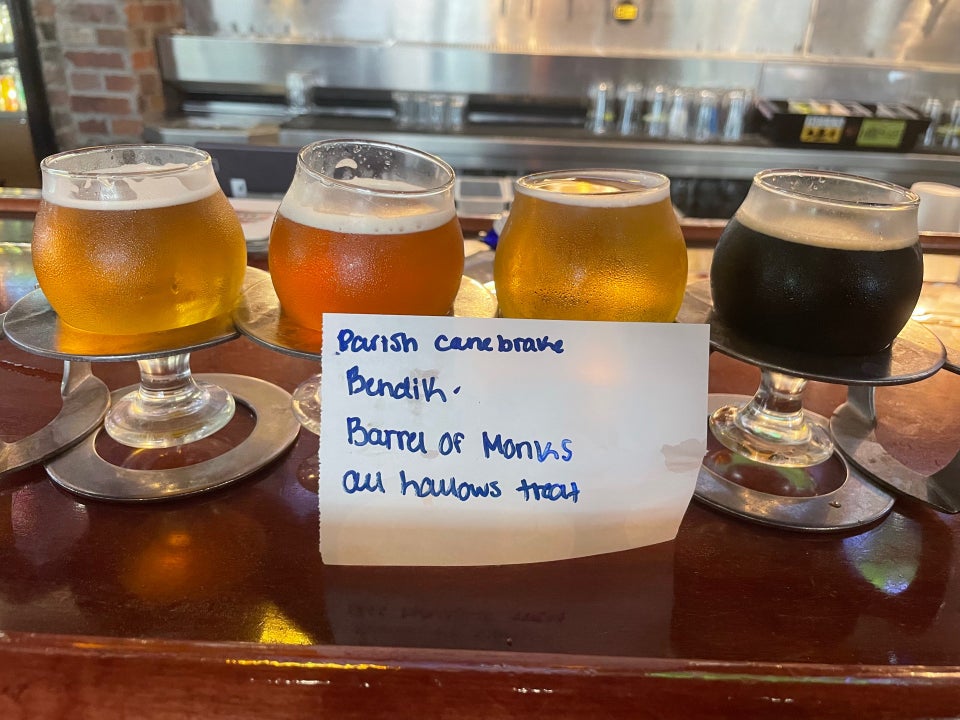 Parish canebrake
Bendik.
Barrel OF Monks
all hallows treat